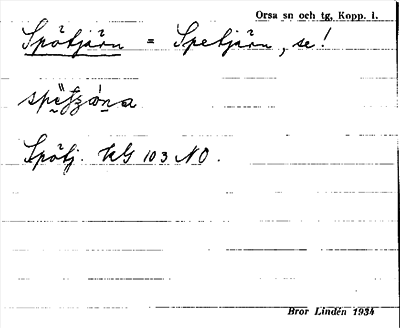 Orsa sn och tg, Kopp. l.
Spötjärn = Spetjärn, se!
Spötj. KG 103 NO.
Bror Lindén 1934